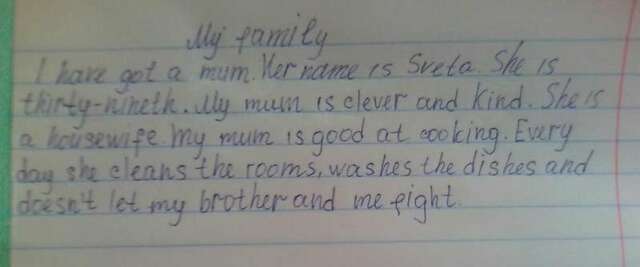 My family
I have got a mum. Her name is Sveta. She is
thirty-nineth. My mum is clever and kind. She is
a housewife. My mum is good at cooking. Every
day she cleans the rooms, washes the dishes and
doesn't let my brother and me fight.